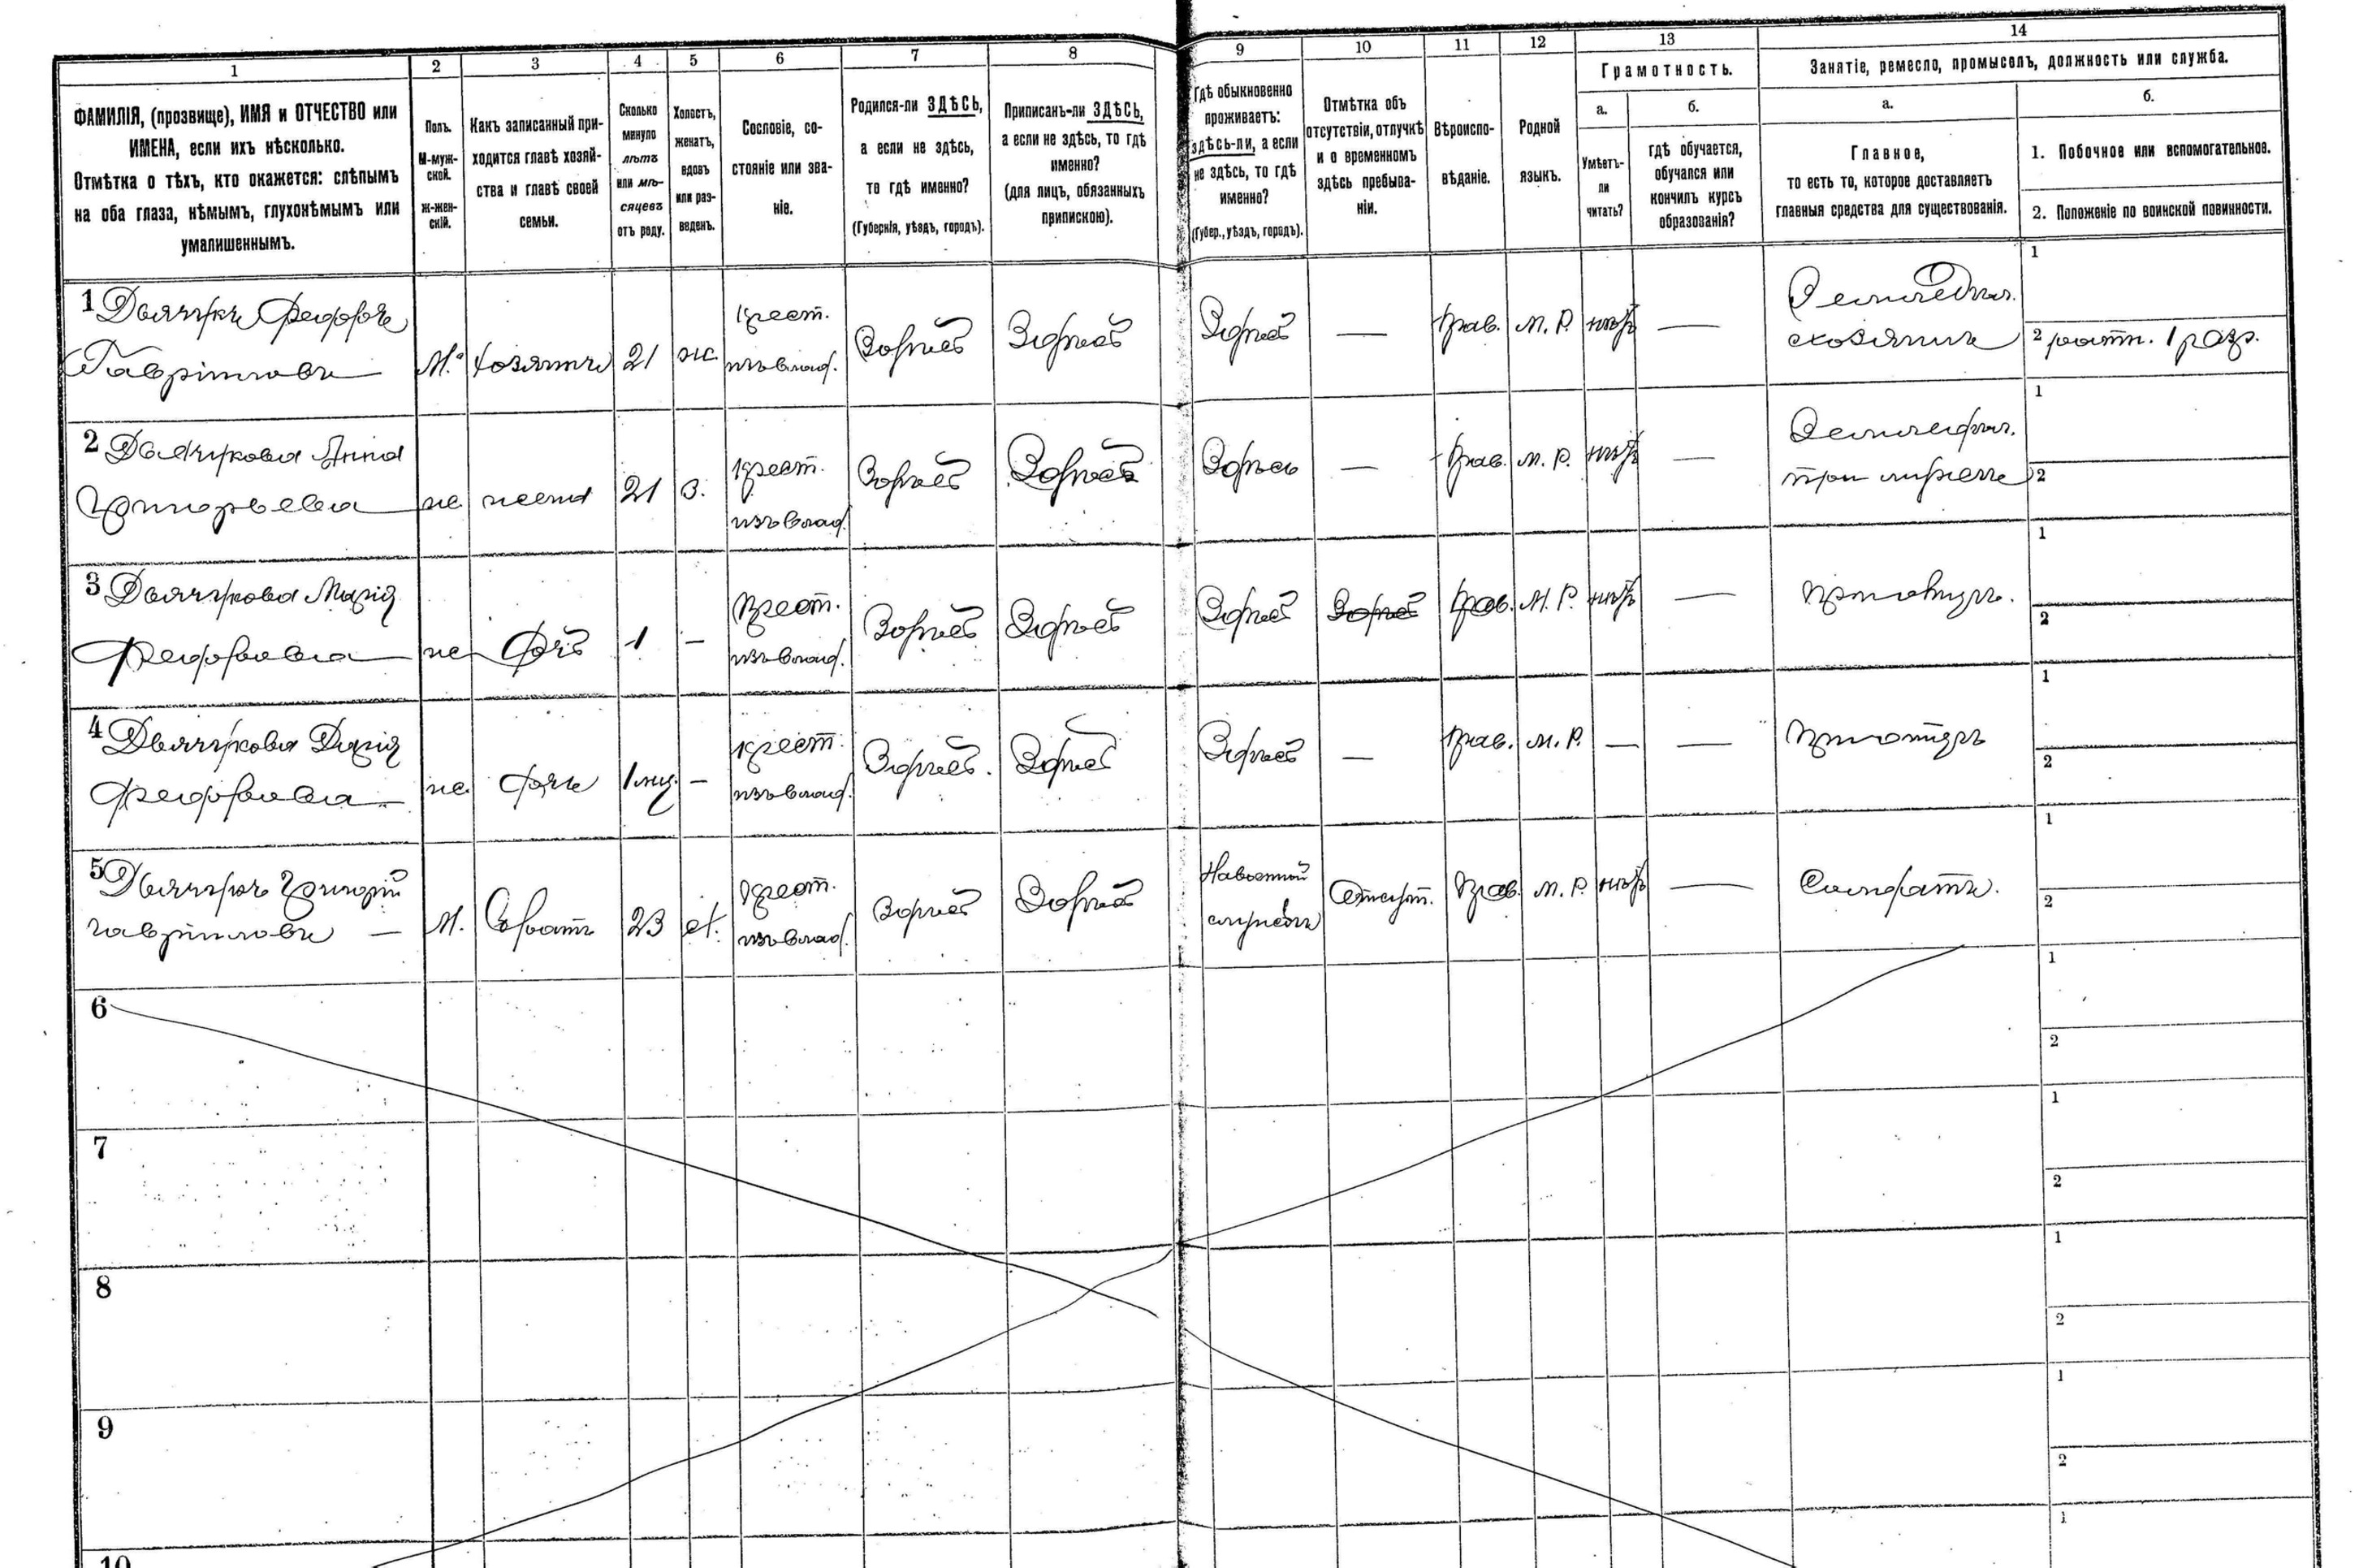 1 2 3 4 5 6 7 8 9 10 11 12 13 14
ФАМИЛІЯ, (прозвище), ИМЯ и ОТЧЕСТВО или
ИМЕНА, если ихъ нѣсколько.
Отмѣтка о тѣхъ, кто окажется: слѣпымъ
на оба глаза, нѣмымъ, глухонѣмымъ или
умалишеннымъ.
Полъ.
М-муж-
ской.
ж-жен-
скій.
Какъ записанный при-
ходится главѣ хозяй-
ства и главѣ своей
семьи.
Сколько
минуло
лѣтъ
или мѣ-
сяцевъ
отъ роду.
Холостъ,
женатъ,
вдовъ
или раз-
веденъ.
Сословіе, со-
стояніе или зва-
ніе.
Родился-ли ЗДѢСЬ,
а если не здѣсь,
то гдѣ именно?
(Губернія, уѣздъ, городъ).
Приписанъ-ли ЗДѢСЬ,
а если не здѣсь, то гдѣ
именно?
(для лицъ, обязанныхъ
припискою).
Гдѣ обыкновенно
проживаетъ:
здѣсь-ли, а если
не здѣсь, то гдѣ
именно?
(Губер., уѣздъ, городъ).
Отмѣтка объ
отсутствіи, отлучкѣ
и о временномъ
здѣсь пребыва-
ніи.
Вѣроиспо-
вѣданіе.
Родной
языкъ.
Грамотность.
а.
Умѣетъ-
ли
читать?
б.
гдѣ обучается,
обучался или
кончилъ курсъ
образованія?
Занятіе, ремесло, промыселъ, должность или служба.
а.
Главное,
то есть то, которое доставляетъ
главныя средства для существованія.
б.
1. Побочное или вспомогательное.
2. Положеніе по воинской повинности.
1 Федоръ
Гавріиловъ М. хозяинъ 21 ж. крест.
изъ влад. Здѣсь Здѣсь Здѣсь — прав. М. Р. нѣтъ — Земледѣл.
хозяинъ 1
2 ратн. 1 разр.
2 Анна
Григорьева ж жена 21 з. крест.
изъ влад. Здѣсь Здѣсь Здѣсь — прав. М. Р. нѣтъ — Земледѣл.
при мужѣ 1
2
3 Марія
Федорова ж дочь 1 — крест.
изъ влад. Здѣсь Здѣсь Здѣсь Здѣсь прав. М. Р. нѣтъ — 1
2
4 Дарія
Федорова ж. дочь 1 мѣс. — крест.
изъ влад. Здѣсь Здѣсь Здѣсь — прав. М. Р. — — 1
2
5 Григорій
Гавріиловъ — М. братъ 23 крест.
изъ влад. Здѣсь Здѣсь На военной
службѣ Отсут. прав. М. Р. нѣтъ — Солдатъ. 1
2
6 1
2
7 1
2
8 1
2
9 1
2
10 1